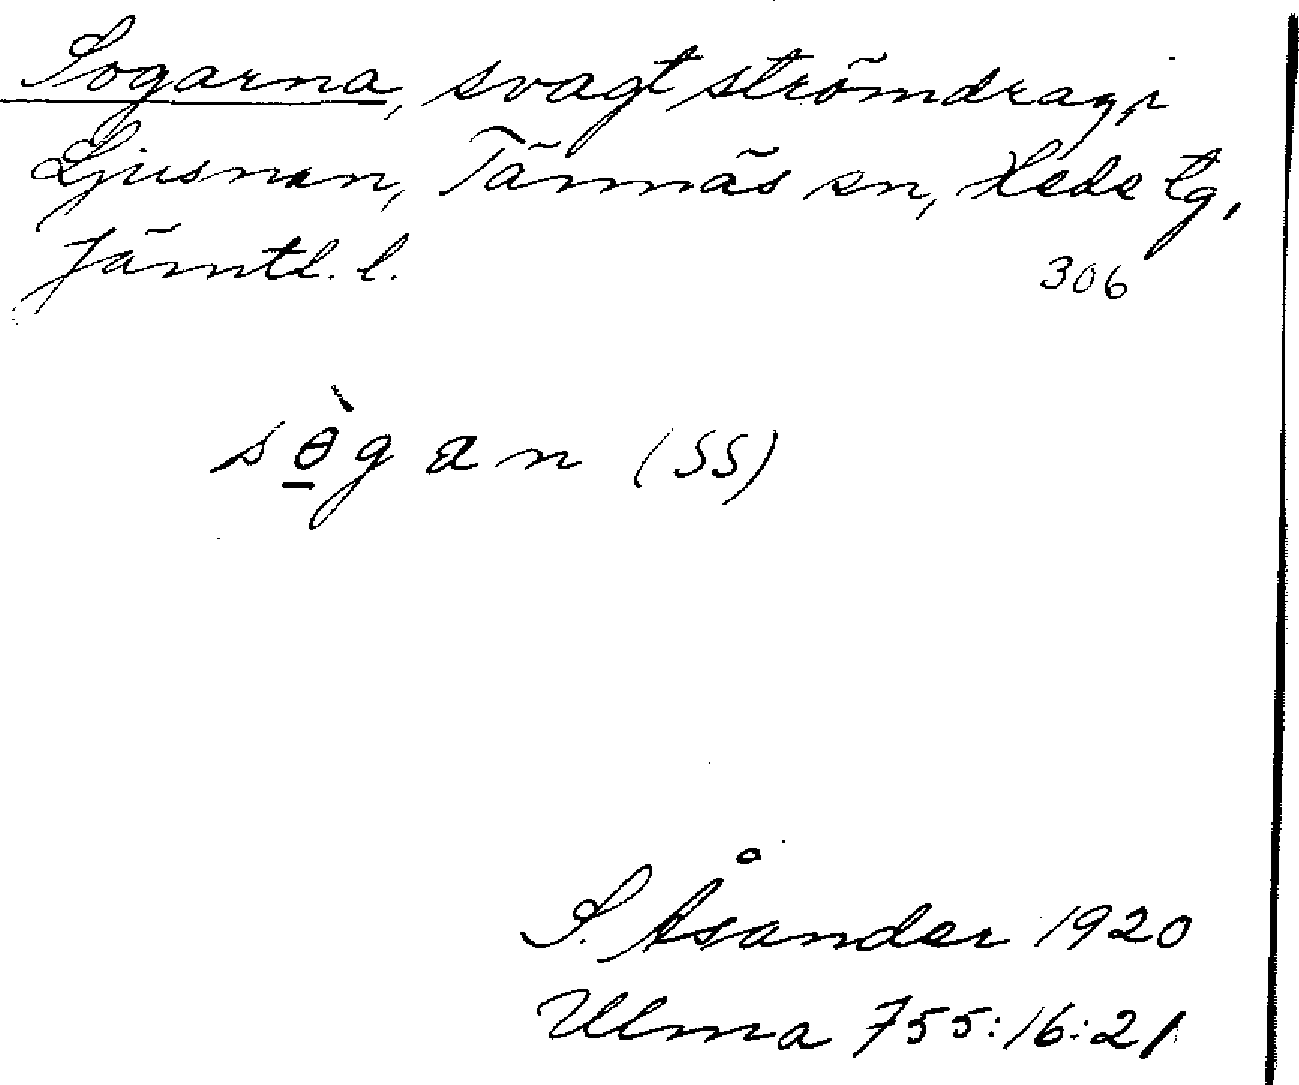 Sogarna, svagt strömdrag i
Ljusnan, Tännäs sn, Hede tg,
Jämtl. l.
306
sɵ̲̀gan (SS)
S. Åsander 1920
Ulma 755:16:21